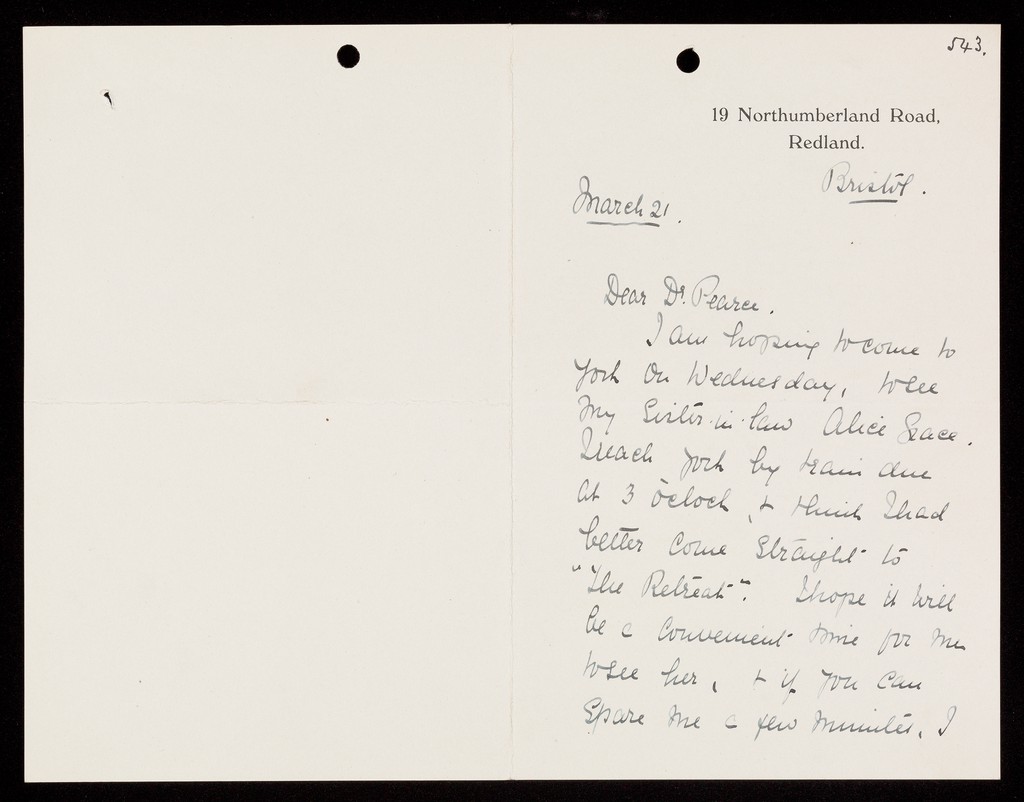 543.
19 Northumberland Road,
Redland.
Bristol.
March 21.
Dear Dr. Pearce.
I am hoping to come to
York on Wednesday, to see
my Sister-in-law Alice Grace.
I reach York by train due
at 3 o'clock, & think I had
better come straight to
"The Retreat". I hope it will
be a convenient time for me
to see her, & if you can
spare me a few minutes, I